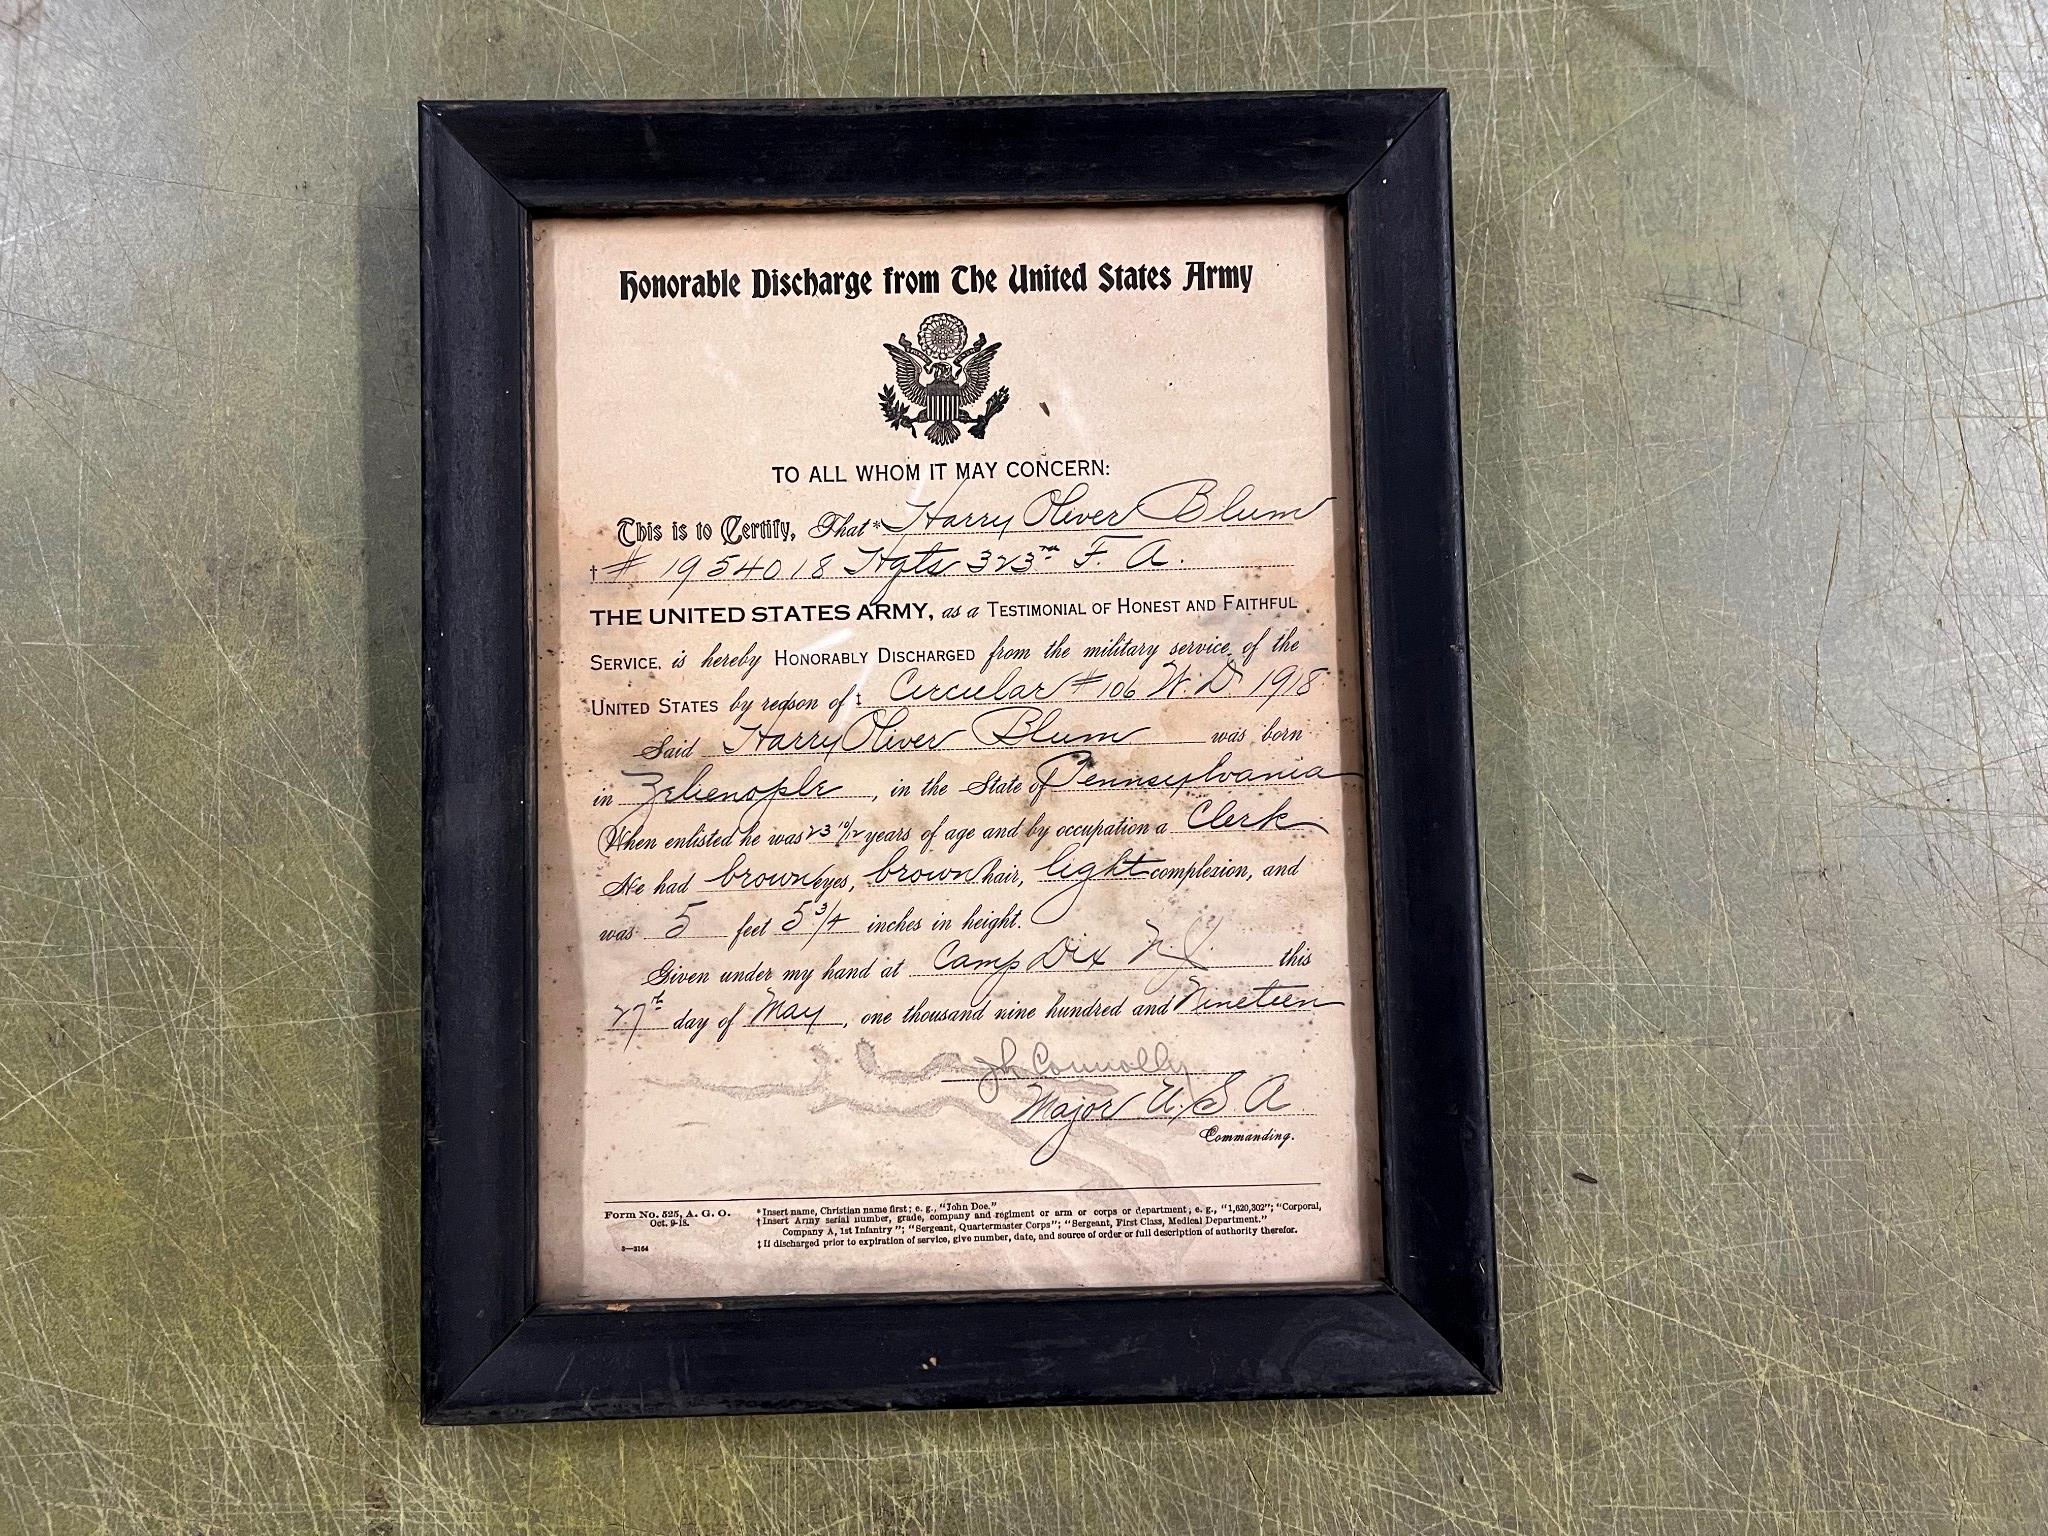 Honorable Discharge from The United States Army
TO ALL WHOM IT MAY CONCERN:
This is to Certify, That* Harry Oliver Blum
† # 1954018 Hqts. 323rd F. A.
THE UNITED STATES ARMY, as a TESTIMONIAL OF HONEST AND FAITHFUL
SERVICE, is hereby HONORABLY DISCHARGED from the military service of the
UNITED STATES by reason of ‡ Circular # 106 W. D. 1918
Said Harry Oliver Blum was born
in Zelienople, in the State of Pennsylvania
When enlisted he was 23 10/12 years of age and by occupation a Clerk
He had brown eyes, brown hair, light complexion, and
was 5 feet 5 3/4 inches in height.
Given under my hand at Camp Dix N. J. this
27th day of May, one thousand nine hundred and Nineteen
Connolly
Major U. S. A
Commanding.
Form No. 525, A. G. O.
Oct. 9-18.
3—3164
*Insert name, Christian name first; e. g., "John Doe."
†Insert Army serial number, grade, company and regiment or arm or corps or department; e. g., "1,620,302"; "Corporal,
Company A, 1st Infantry"; "Sergeant, Quartermaster Corps"; "Sergeant, First Class, Medical Department."
‡If discharged prior to expiration of service, give number, date, and source of order or full description of authority therefor.